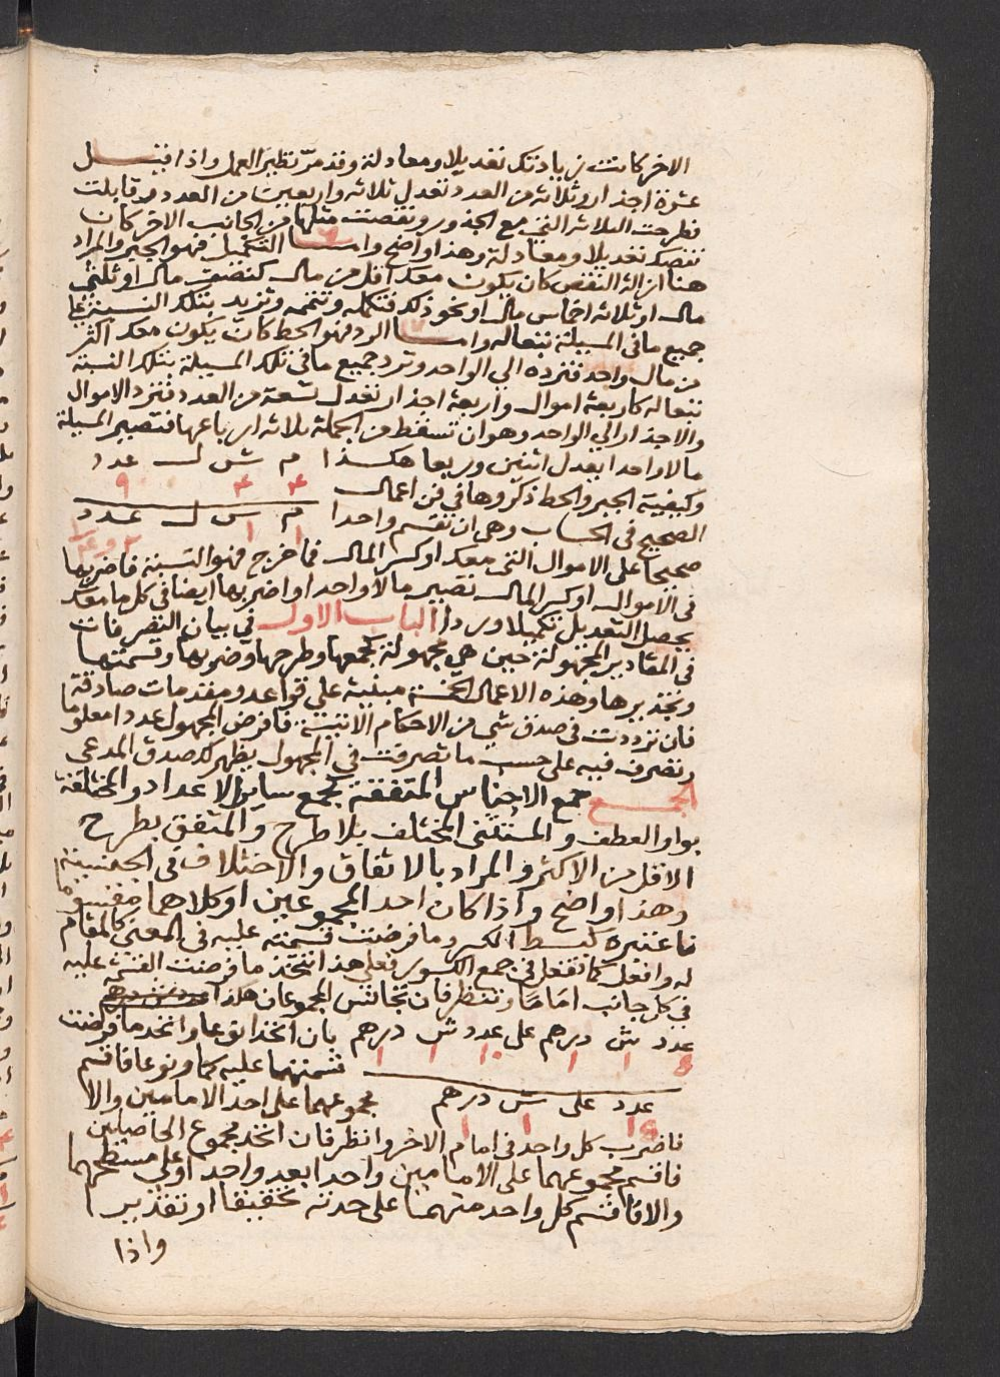 الاخر كانت زيادتك تعديلا ومعادلة وقد مرّ نظير العمل واذا قيل
عشرة اجذار وثلاثة من العدد تعدل ثلاثة واربعين من العدد وقابلت
فطرحت الثلاثة التي مع الجذور ونقصت مثلها من الجانب الاخر كان
نقصك تعديلا ومعادلة وهذا واضح واما التكميل فهو الجبر والمراد
هنا ازالة النقص كان يكون معك اقل من مال كنصف مال او ثلثي
مال او ثلاثة اخماس مال او نحو ذلك فتكمله وتتممه وتزيد بتلك النسبة على
جميع ما في المسيلة بتعاله واما الرد فهو الحط كان يكون معك اكثر
من مال واحد فترده الي الواحد وترد جميع ما في تلك المسيلة بتلك النسبة
بتعاله كاربعة اموال واربعة اجذار تعدل تسعة من العدد فترد الاموال
والاجذار الي الواحد وهو ان تسقط من الجملة ثلاثة ارباعها فتصير المسيلة
مالا واحدا يعدل اثنين وربعا هكذا م ش ل عدد
۴ ۴ ۹
وكيفية الجبر والحط ذكروها في فن اعمال
الصحيح في الحساب وهي ان تقسم واحدا م س ل عدد
صحيحا على الاموال التي معك او كسر المال فما خرج فهو النسبة فاضربها
في الاموال او كسر المال تصير مالا واحدا واضربها ايضا في كل ما معك
يحصل التعديل تكميلا وردا الباب الاول في بيان التصرفات
في المقادير المجهولة حين هي مجهولة كجمعها وطرحها وضربها وقسمتها
وتجذيرها وهذه الاعمال الخمسة مبنية علي قواعد ومقدمات صادقة
فان ترددت في صدق شي من الاحكام الاتية فافرض المجهول عددا معلوما
وتصرف فيه على حسب ما تصرفت في المجهول يظهر لك صدق المدعي
الجمع جمع الاجناس المتفقة كجمع ساير الاعداد والمختلفة
بواو العطف والمستثنى المختلف بلا طرح والمتفق بطرح
الاقل من الاكثر والمراد بالاتفاق والاختلاف في الجنسية
وهذا واضح واذا كان احد المجموعين او كلاهما مقسوما
فاعتبره كبسط الكسر وما فرضت قسمته عليه في المعني كالمقام
له وافعل كما تفعل في جمع الكسور فعلى هذا اتخذ ما فرضت القسمة عليه
في كل جانب اماما وتنظر فان تجانس المجموعان هكذا
عدد ش درهم على عدد ش درهم بان اتحدا نوعا واتحد ما فرضت
۱ ۱ ۱۰ ۱ ۱
قسمتهما عليه كما ونوعا فاقسم
عدد على ش درهم مجموعهما على احد الامامين والا
فاضرب كل واحد في امام الاخر وانظر فان اتحد مجموع الحاصلين
فاقسم مجموعهما على الامامين واحدا بعد واحد او على مسطحهما
والا فاقسم كل واحد منهما على حدته تحقيقا او تقديرا
واذا